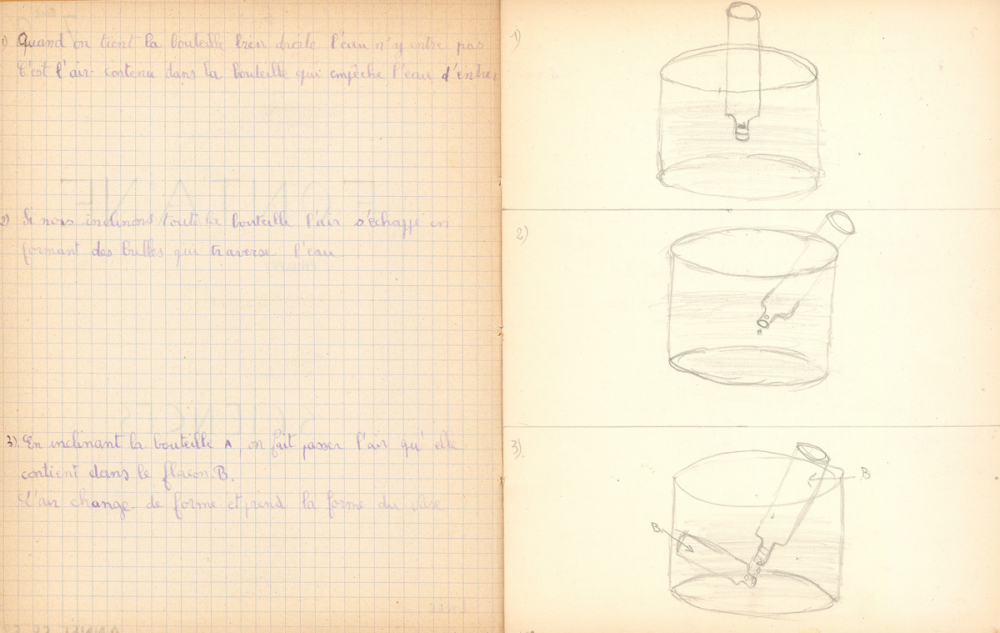 1) Quand on tient la bouteille bien droite l'eau n'y entre pas
C'est l'air contenu dans la bouteille qui empêche l'eau d'entrer
2) Si nous inclinons toute la bouteille l'air s'échappe en
formant des bulles qui traverse l'eau
3) En inclinant la bouteille A, on fait passer l'air qu'elle
contient dans le flacon B.
L'air change de forme et prend la forme du vase
1)
2)
3)
B
B